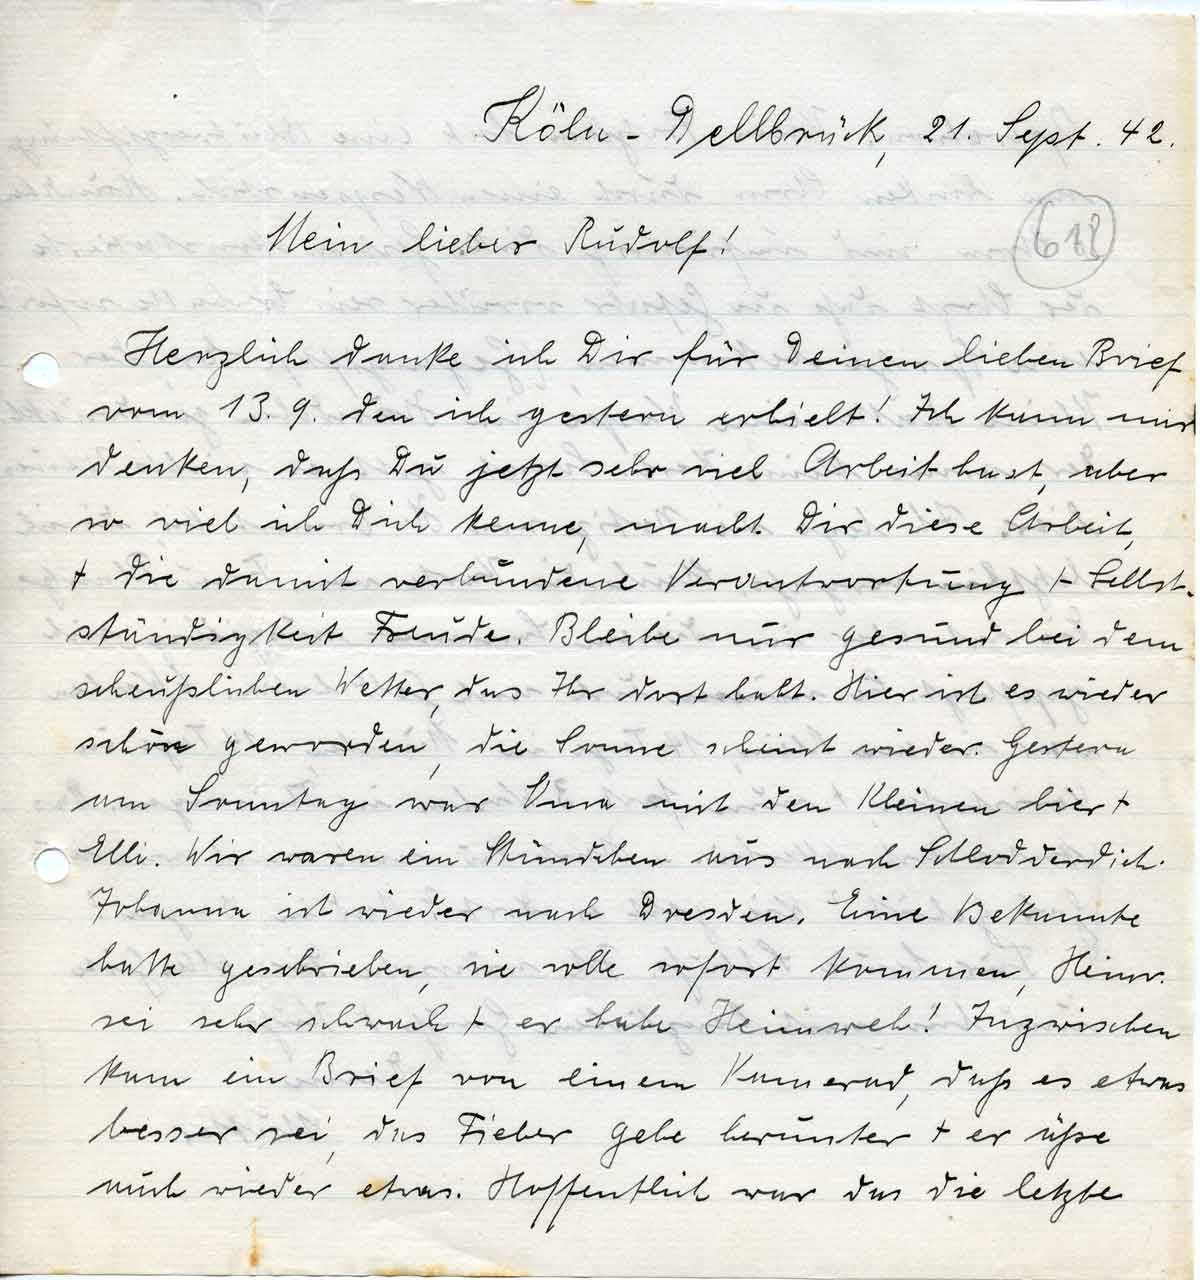 Köln-Dellbrück, 21. Sept. 42.
618
Mein lieber Rudolf!
Herzlich danke ich Dir für Deinen lieben Brief
vom 13. 9. den ich gestern erhielt! Ich kann mir
denken, daß Du jetzt sehr viel Arbeit hast, aber
so viel ich Dich kenne, macht Dir diese Arbeit,
+ die damit verbundene Verantwortung + Selbst-
ständigkeit Freude. Bleibe nur gesund bei dem
scheußlichen Wetter, das Ihr dort habt. Hier ist es wieder
schön geworden, die Sonne scheint wieder. Gestern
am Sonntag war mit den Kleinen hier +
Elli. Wir waren ein Stündchen aus nach Schlodderdich.
Johanna ist wieder nach Dresden. Eine Bekannte
hatte geschrieben, sie solle sofort kommen, Heinr.
sei sehr schwach + er habe Heimweh! Inzwischen
kam ein Brief von einem Kamerad, daß es etwas
besser sei, das Fieber gehe herunter + er äße
auch wieder etwas. Hoffentlich war das die letzte